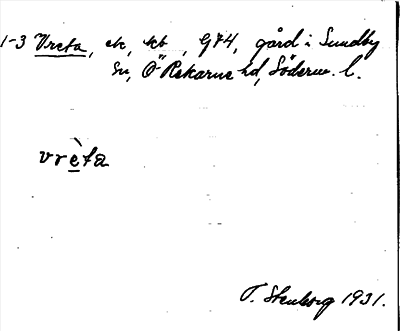 1-3 Vreta, ek, kb, G74, gård i Sundby
sn, Ö Rekarne hd, Söderm. l.
vrèta
T. Stenborg 1931.